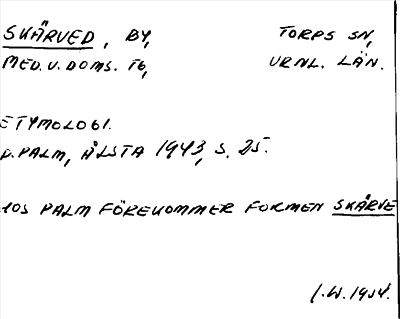 SKÄRVED, BY, TORPS SN,
MED.V.DOMS. TG, VRNL. LÄN.
ETYMOLOGI.
D.PALM, ÅLSTA 1943, S. 25.
HOS PALM FÖREKOMMER FORMEN SKÄRVE
I.W. 1954.